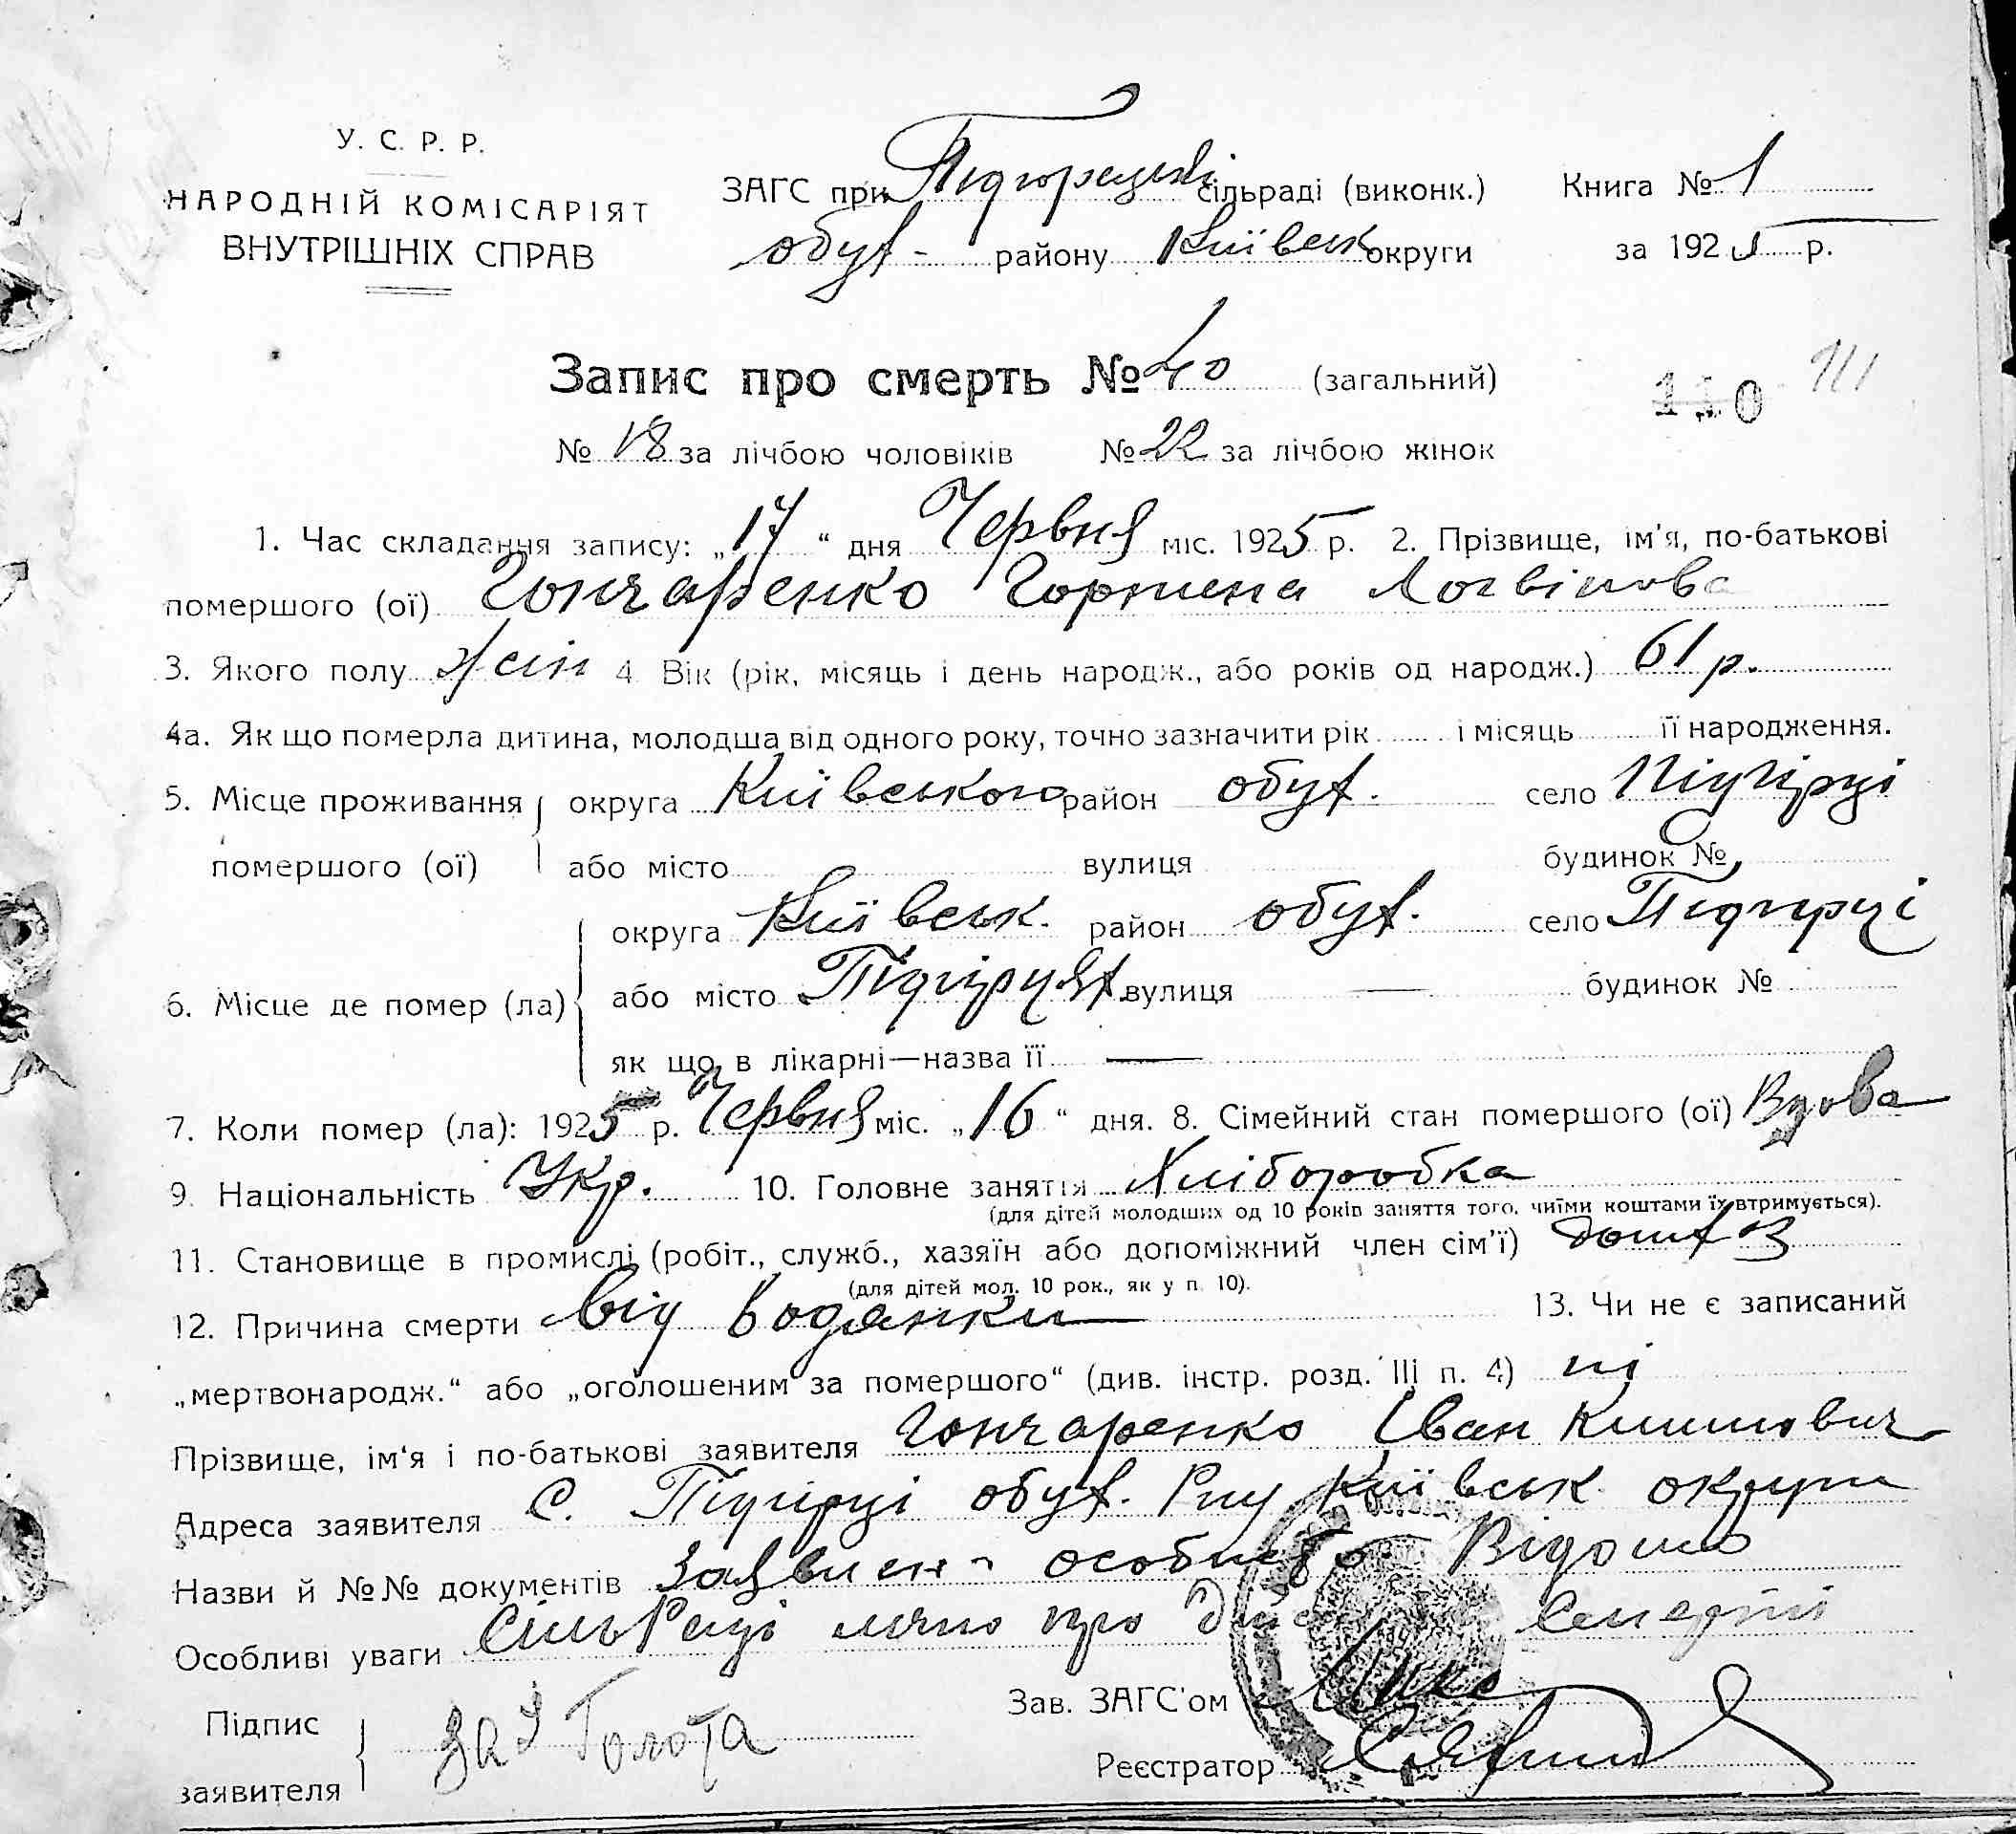 У. С. Р. Р.
НАРОДНІЙ КОМІСАРІЯТ
ВНУТРІШНІХ СПРАВ
ЗАГС при Підгорецькі сільраді (виконк.) Книга № 1
обух- району Київськ округи за 1925 р.
Запис про смерть № 40 (загальний)
110 111
№ 18 за лічбою чоловіків № 22 за лічбою жінок
1. Час складання запису: „17“ дня Червня міс. 1925 р. 2. Прізвище, ім'я, по-батькові
помершого (ої) Гончаренко Горпина Логвінова
3. Якого полу жін 4 Вік (рік, місяць і день народж., або років од народж.) 61 р.
4а. Як що померла дитина, молодша від одного року, точно зазначити рік і місяць її народження.
5. Місце проживання округа Київського район обух. село Підгірці
помершого (ої) або місто вулиця будинок №
округа Київськ. район обух. село Підгірці
6. Місце де помер (ла) або місто Підгірцях вулиця — будинок №
як що в лікарні—назва її —
7. Коли помер (ла): 1925 р. Червня міс. „16“ дня. 8. Сімейний стан помершого (ої) Вдова
9. Національність Укр. 10. Головне заняття Хліборобка
(для дітей молодших од 10 років заняття того, чиїми коштами їх втримується).
11. Становище в промислі (робіт., служб., хазяїн або допоміжний член сім'ї)
(для дітей мол. 10 рок., як у п 10).
12. Причина смерти Від Водянки 13. Чи не є записаний
„мертвонародж.“ або „оголошеним за помершого“ (див. інстр. розд. III п. 4) ні
Прізвище, ім'я і по-батькові заявителя Гончаренко Іван
Адреса заявителя С. Підгірці обух. Р-ну Київськ округи
Назви й №№ документів особисто Відомо
Особливі уваги СільРаді про смерти
Підпис
заявителя Голота
Зав. ЗАГС'ом
Реєстратор